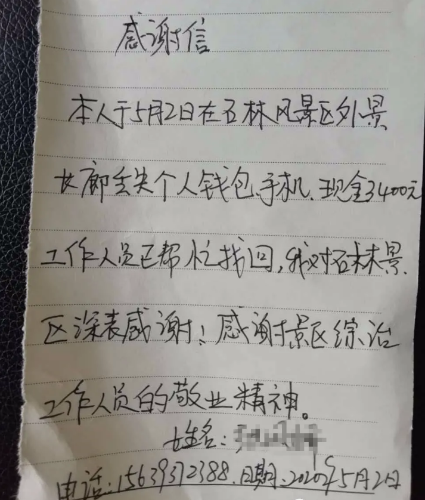 感谢信
本人于5月2日在石林风景区外景
长廊丢失个人钱包手机、现金3400元
工作人员已帮忙找回，我对石林景
区深表感谢！感谢景区综治
工作人员的敬业精神。
姓名：
电话：15639312388.日期.2020年5月2日